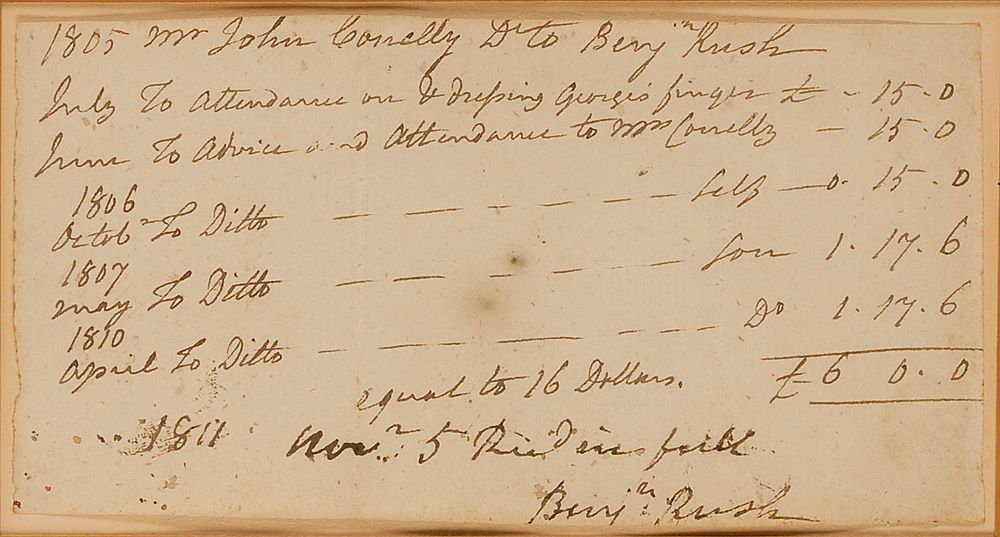 1805 Mr John Conelly Dr to Benjn Rush
July To Attendance on & dressing George's finger £ - 15 - 0
June To Advice and Attendance to Mrs Conelly — 15 - 0
1806
Octobr To Ditto — — — — — — — — Self — 0 - 15 - 0
1807
May To Ditto — — — — — — — Son 1 - 17 - 6
1810
April To Ditto — — — — — — — — Do 1 - 17 - 6
equal to 16 Dollars. £ 6 0 - 0
1811 Novr 5 Recd in full
Benjn Rush